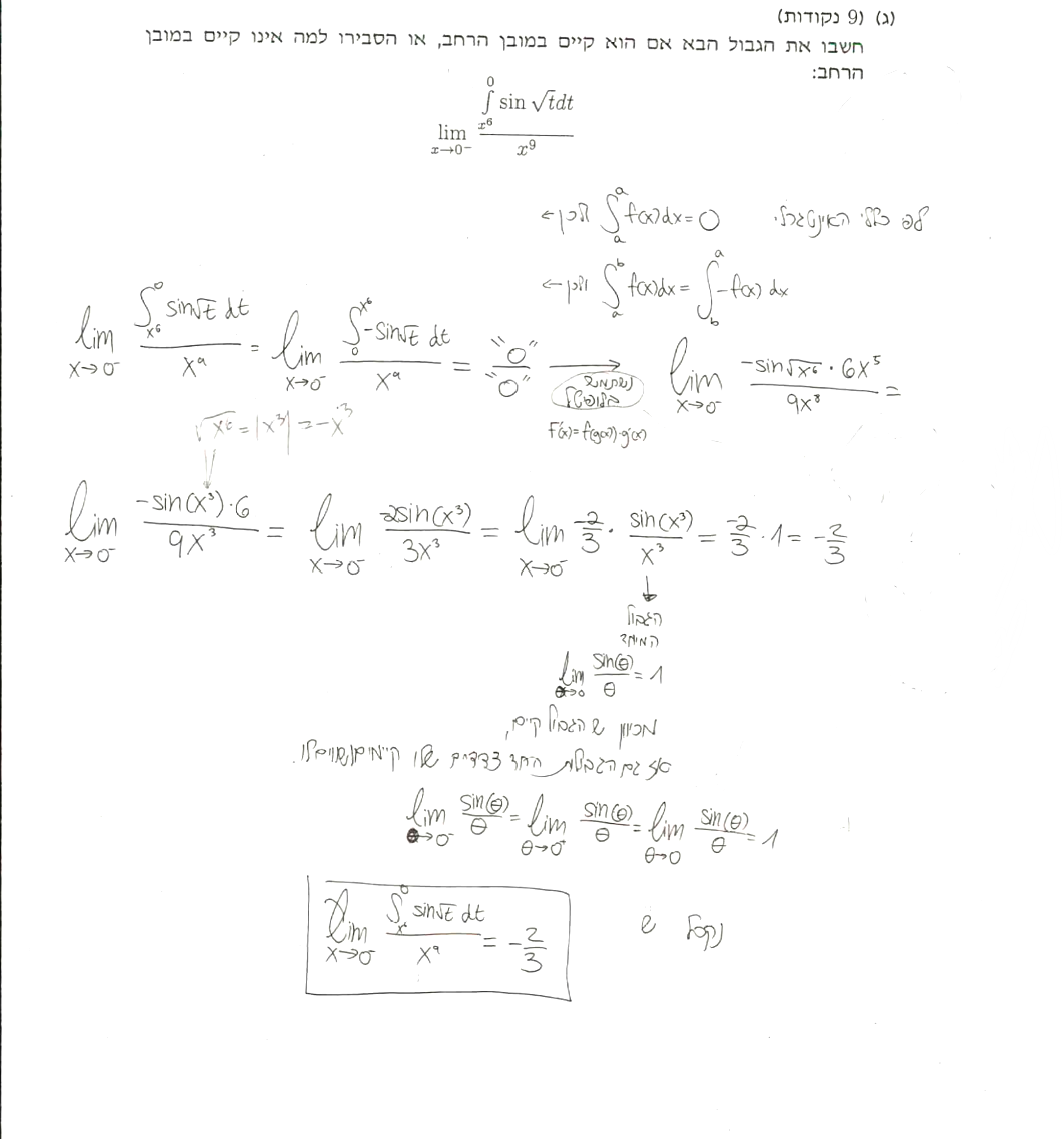 (ג) (9 נקודות)
חשבו את הגבול הבא אם הוא קיים במובן הרחב, או הסבירו למה אינו קיים במובן
הרחב:
lim_{x→0⁻} (∫_{x⁶}^{0} sin √t dt) / x⁹
לפי כללי האינטגרל. ∫_a^a f(x)dx = 0 ולכן ←
∫_a^b f(x)dx = ∫_b^a -f(x) dx ולכן ←
lim_{x→0⁻} (∫_{x⁶}^{0} sin√t dt) / x⁹ = lim_{x→0⁻} (∫_0^{x⁶} -sin√t dt) / x⁹ = "0"/"0" → lim_{x→0⁻} (-sin√x⁶ · 6x⁵) / 9x⁸ =
נשתמש
בלופיטל
F'(x) = f(g(x))·g'(x)
√x⁶ = |x³| = -x³
lim_{x→0⁻} (-sin(x³)·6) / 9x³ = lim_{x→0⁻} (-2sin(x³)) / 3x³ = lim_{x→0⁻} -2/3 · sin(x³)/x³ = -2/3 · 1 = -2/3
הגבול
המיוחד
lim_{θ→0} sin(θ)/θ = 1
מכיוון שהגבול קיים,
אז גם הגבולות החד צדדיים שלו קיימים ושווים לו.
lim_{θ→0⁻} sin(θ)/θ = lim_{θ→0⁺} sin(θ)/θ = lim_{θ→0} sin(θ)/θ = 1
נקבל ש
lim_{x→0⁻} (∫_{x⁶}^{0} sin√t dt) / x⁹ = -2/3